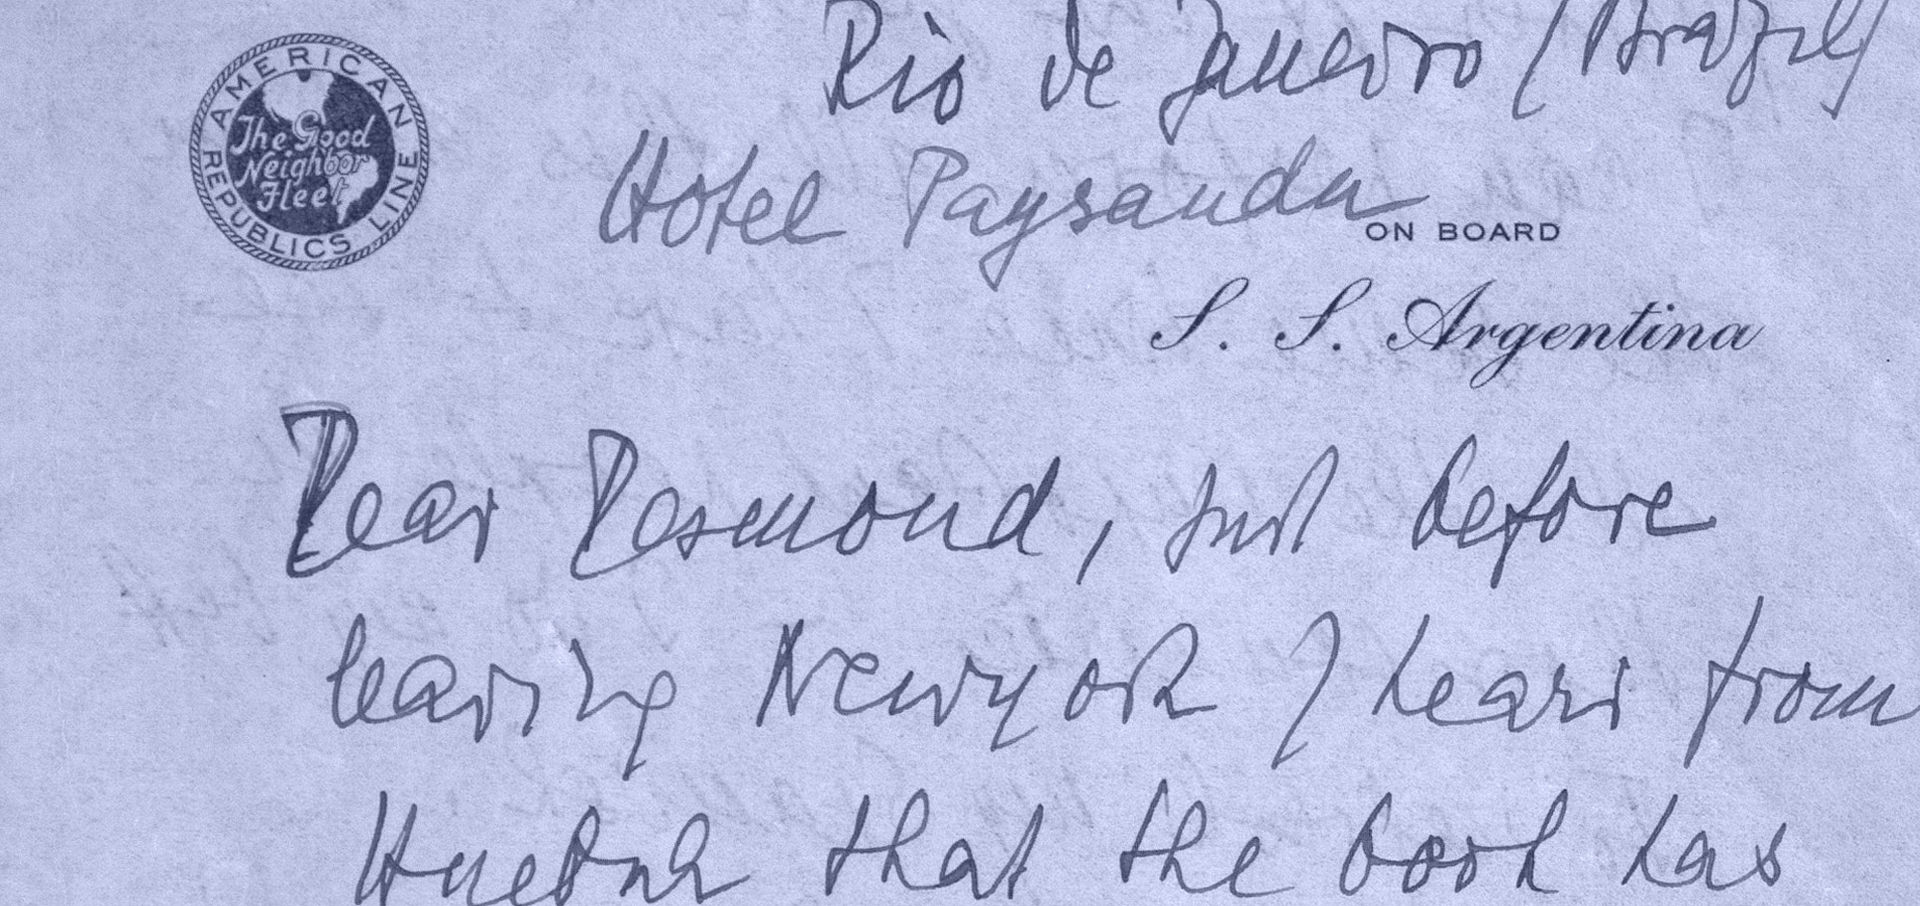 Rio de Janeiro (Brazil)
AMERICAN REPUBLICS LINE
The Good
Neighbor
Fleet
Hotel Paysandu
ON BOARD
S. S. Argentina
Dear Desmond, just before
leaving Newyork I hear from
that the book has